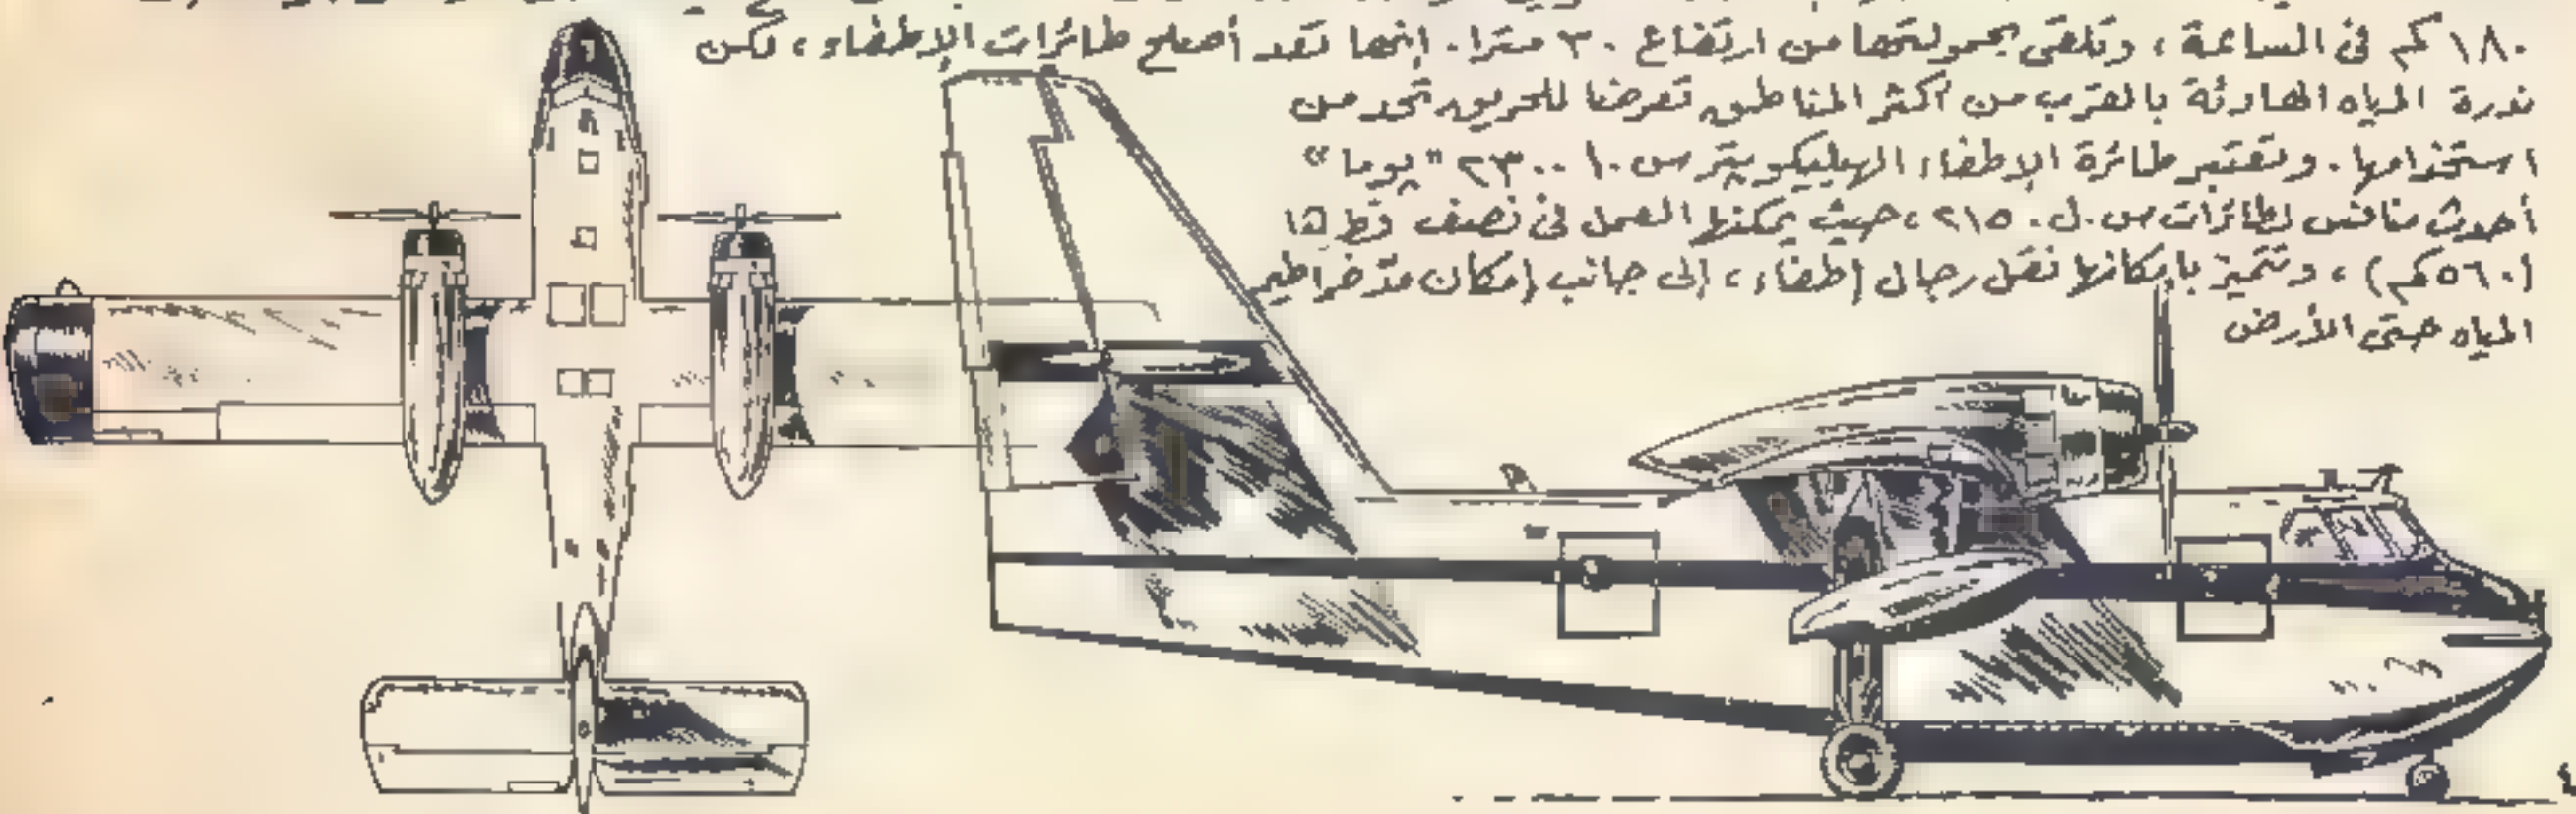 ١٨٠ كم فى الساعة ، وتلقى بحمولتها من ارتفاع ٣٠ مترا . إنها تعد أصلح طائرات الإطفاء ، لكن
ندرة المياه الهادئة بالقرب من أكثر المناطق تعرضا للحريق تحد من
استخدامها . وتعتبر طائرة الإطفاء الهيليكوبتر س . أ ٢٣٠٠ "بوما"
أحدث منافس لطائرات س . ل . ٢١٥ ، حيث يمكنها العمل فى نصف قطر
(٥٦٠ كم) ، وتتميز بإمكانها نقل رجال إطفاء ، إلى جانب إمكان مد خراطيم
المياه حتى الأرض